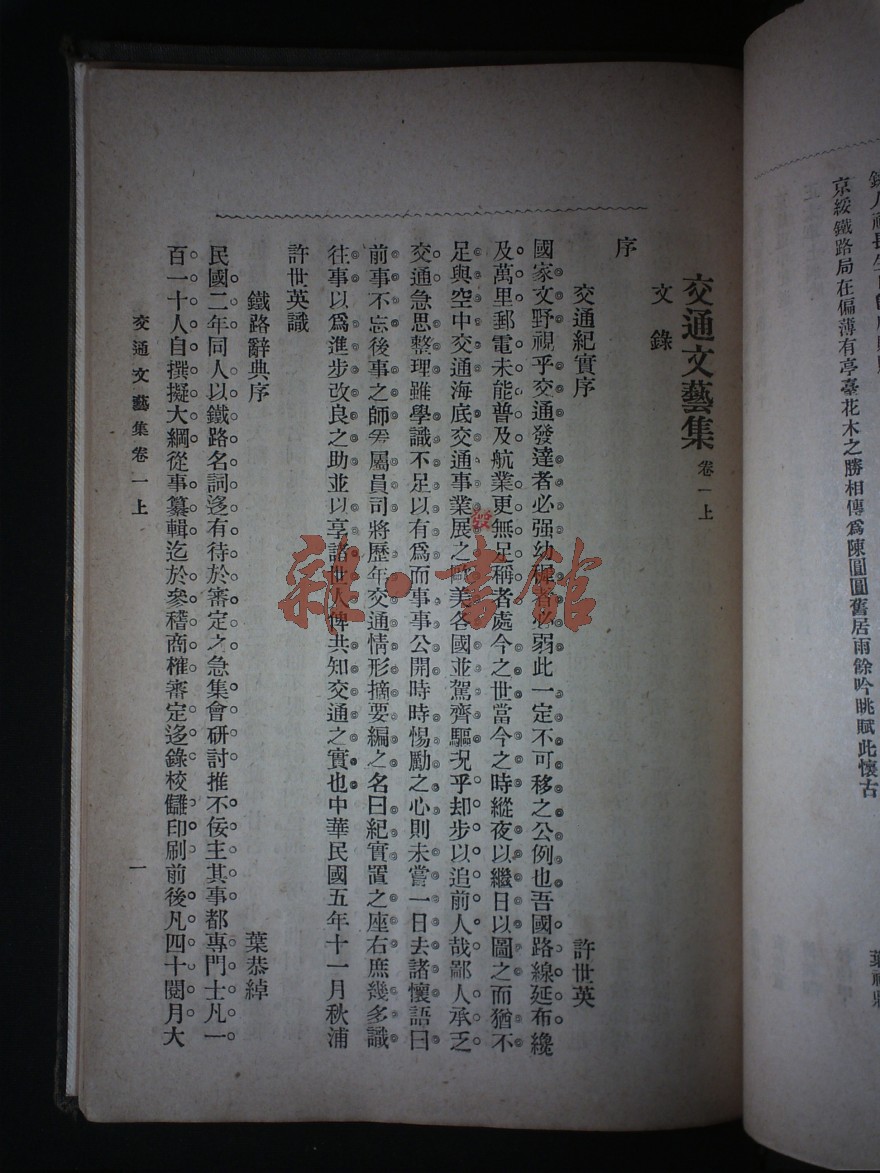 京綏鐵路局在偏薄有亭臺花木之勝相傳爲陳圓圓舊居雨餘吟眺賦此懷古
交通文藝集 卷一上
文錄
序
交通紀實序 許世英
國家文野視乎交通發達者必强幼稚者必弱此一定不可移之公例也吾國路線延布纔
及萬里郵電未能普及航業更無足稱者處今之世當今之時縱夜以繼日以圖之而猶不
足與空中交通海底交通事業展之歐美各國並駕齊驅况乎却步以追前人哉鄙人承乏
交通急思整理雖學識不足以有爲而事事公開時時惕勵之心則未嘗一日去諸懷語曰
前事不忘後事之師爰屬員司將歷年交通情形摘要編之名曰紀實置之座右庶幾多識
往事以爲進步改良之助並以享諸世人俾共知交通之實也中華民國五年十一月秋浦
許世英識
鐵路辭典序 葉恭綽
民國二年同人以鐵路名詞迻有待於審定之急集會研討推不佞主其事都專門士凡一
百一十人自撰擬大綱從事纂輯迄於參稽商榷審定迻錄校讎印刷前後凡四十閱月大
交通文藝集卷一上
一
發
雜·書館